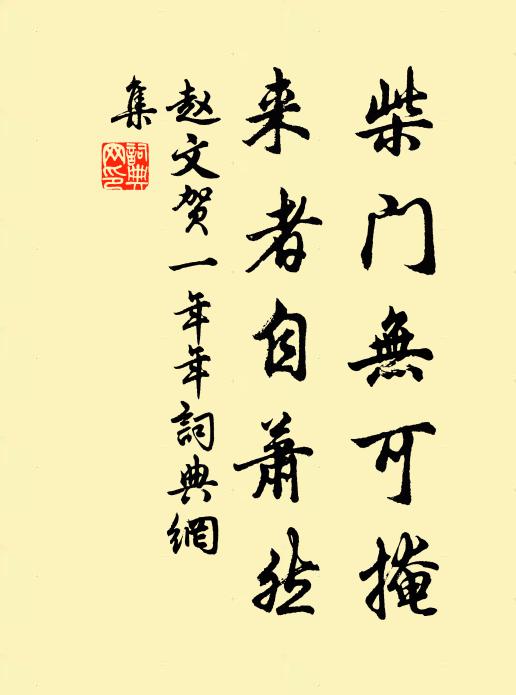 柴门無可掩
来者自萧然
赵文贺一年年詞典網
集
詞典網印